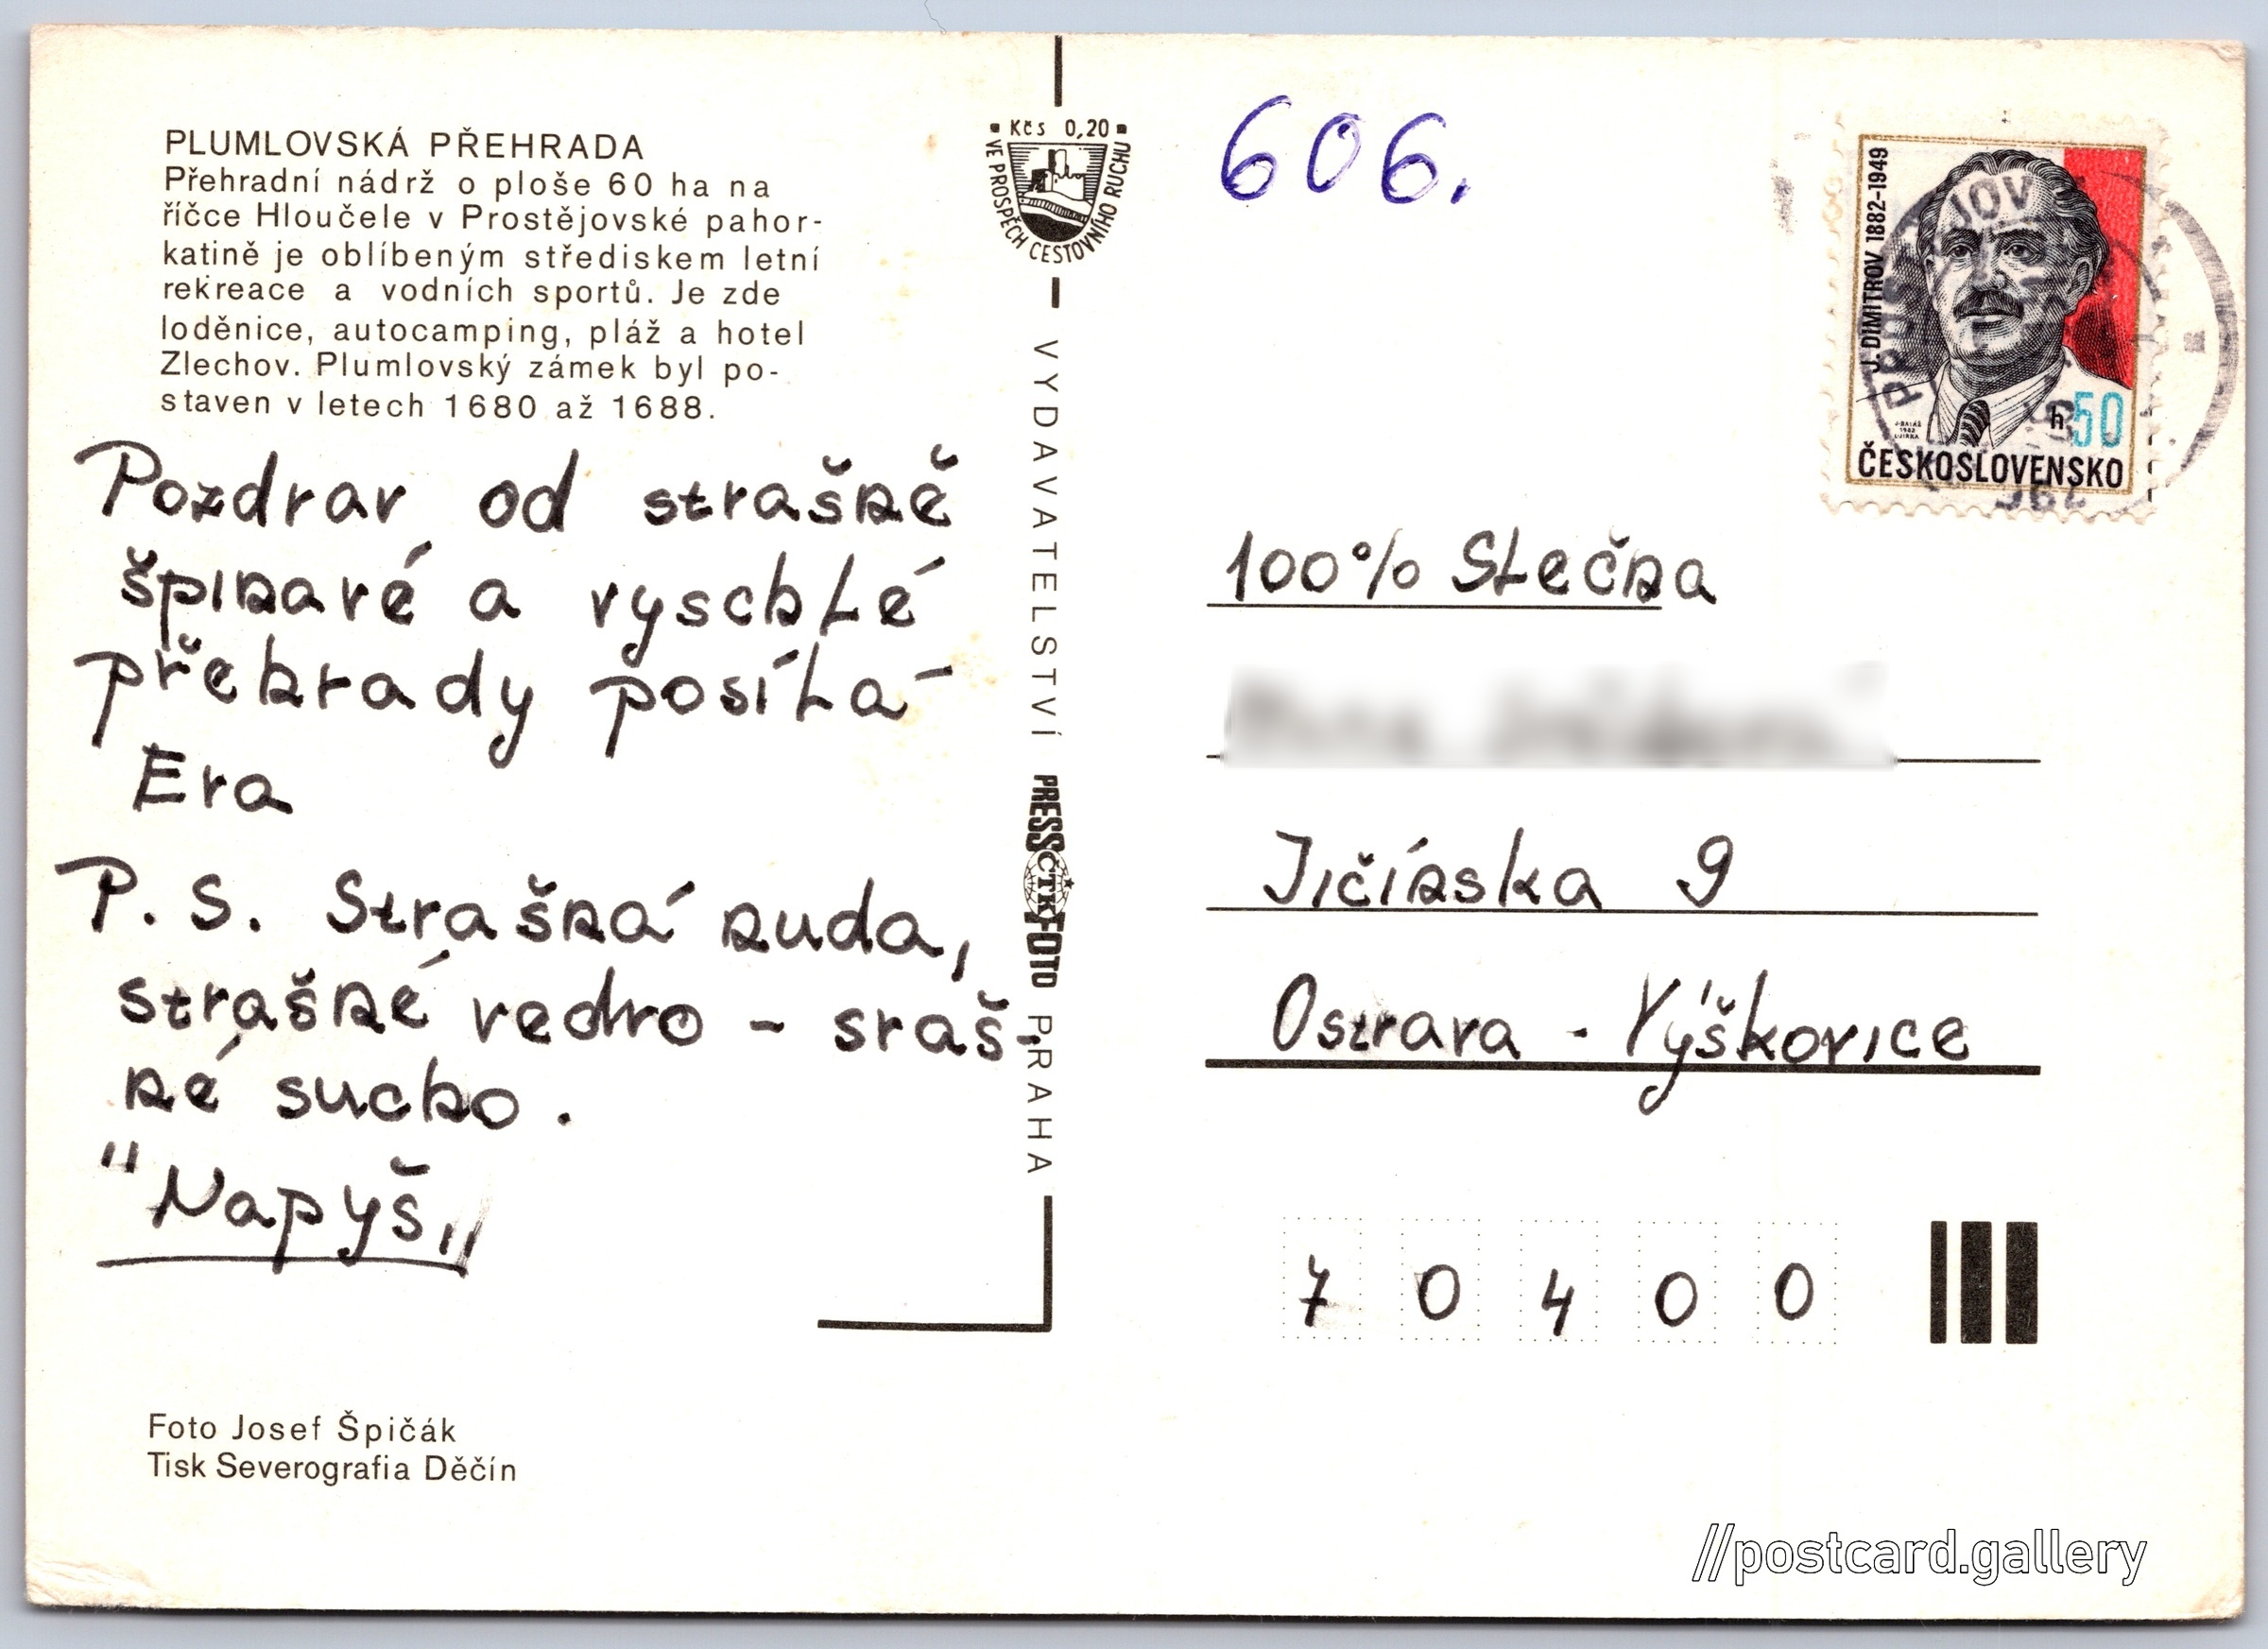 PLUMLOVSKÁ PŘEHRADA
Přehradní nádrž o ploše 60 ha na
říčce Hloučele v Prostějovské pahor-
katině je oblíbeným střediskem letní
rekreace a vodních sportů. Je zde
loděnice, autocamping, pláž a hotel
Zlechov. Plumlovský zámek byl po-
staven v letech 1680 až 1688.
Pozdrav od strašně
špinavé a vyschlé
přehrady posílá
Eva
P. S. Strašná nuda,
strašné vedro - sraš-
né sucho.
"Napyš„
Foto Josef Špičák
Tisk Severografia Děčín
Kčs 0,20
VE PROSPĚCH CESTOVNÍHO RUCHU
VYDAVATELSTVÍ PRESSFOTO PRAHA
ČTK
606.
J. DIMITROV 1882-1949
h50
ČESKOSLOVENSKO
100% Slečna
Jičínska 9
Ostrava - Výškovice
70400
//postcard.gallery